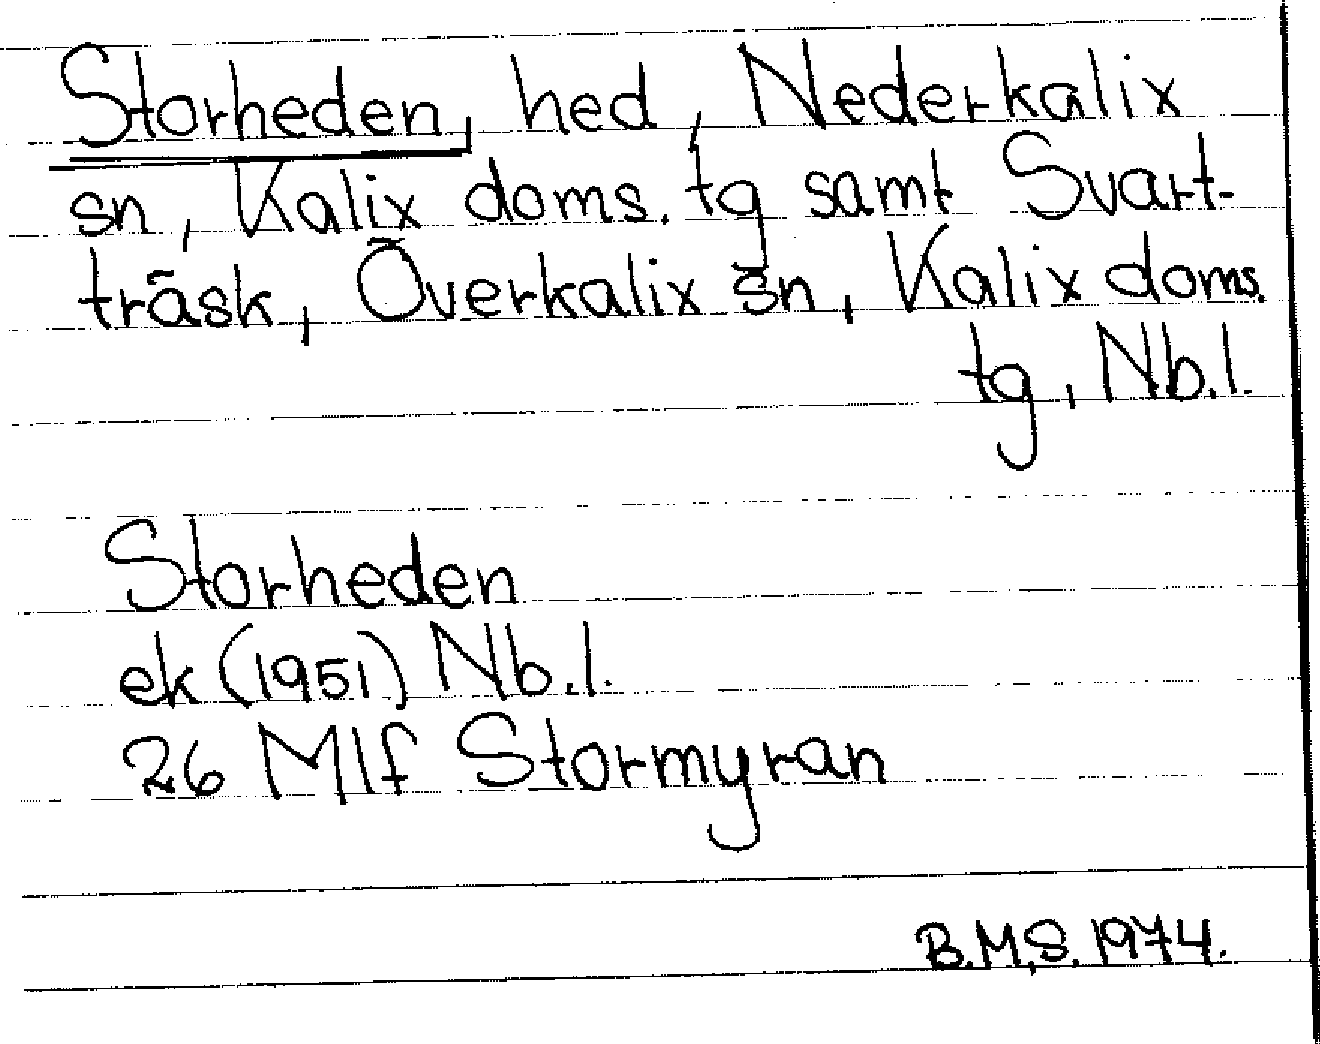 Storheden, hed, Nederkalix
sn, Kalix doms. tg samt Svart-
träsk, Överkalix sn, Kalix doms.
tg, Nb.l.
Storheden
ek (1951) Nb.l.
26 Mlf Stormyran
B.M.S. 1974.